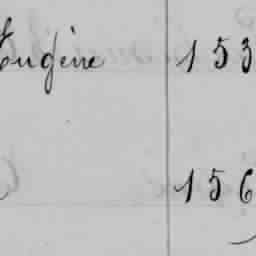 Eugène 153
156